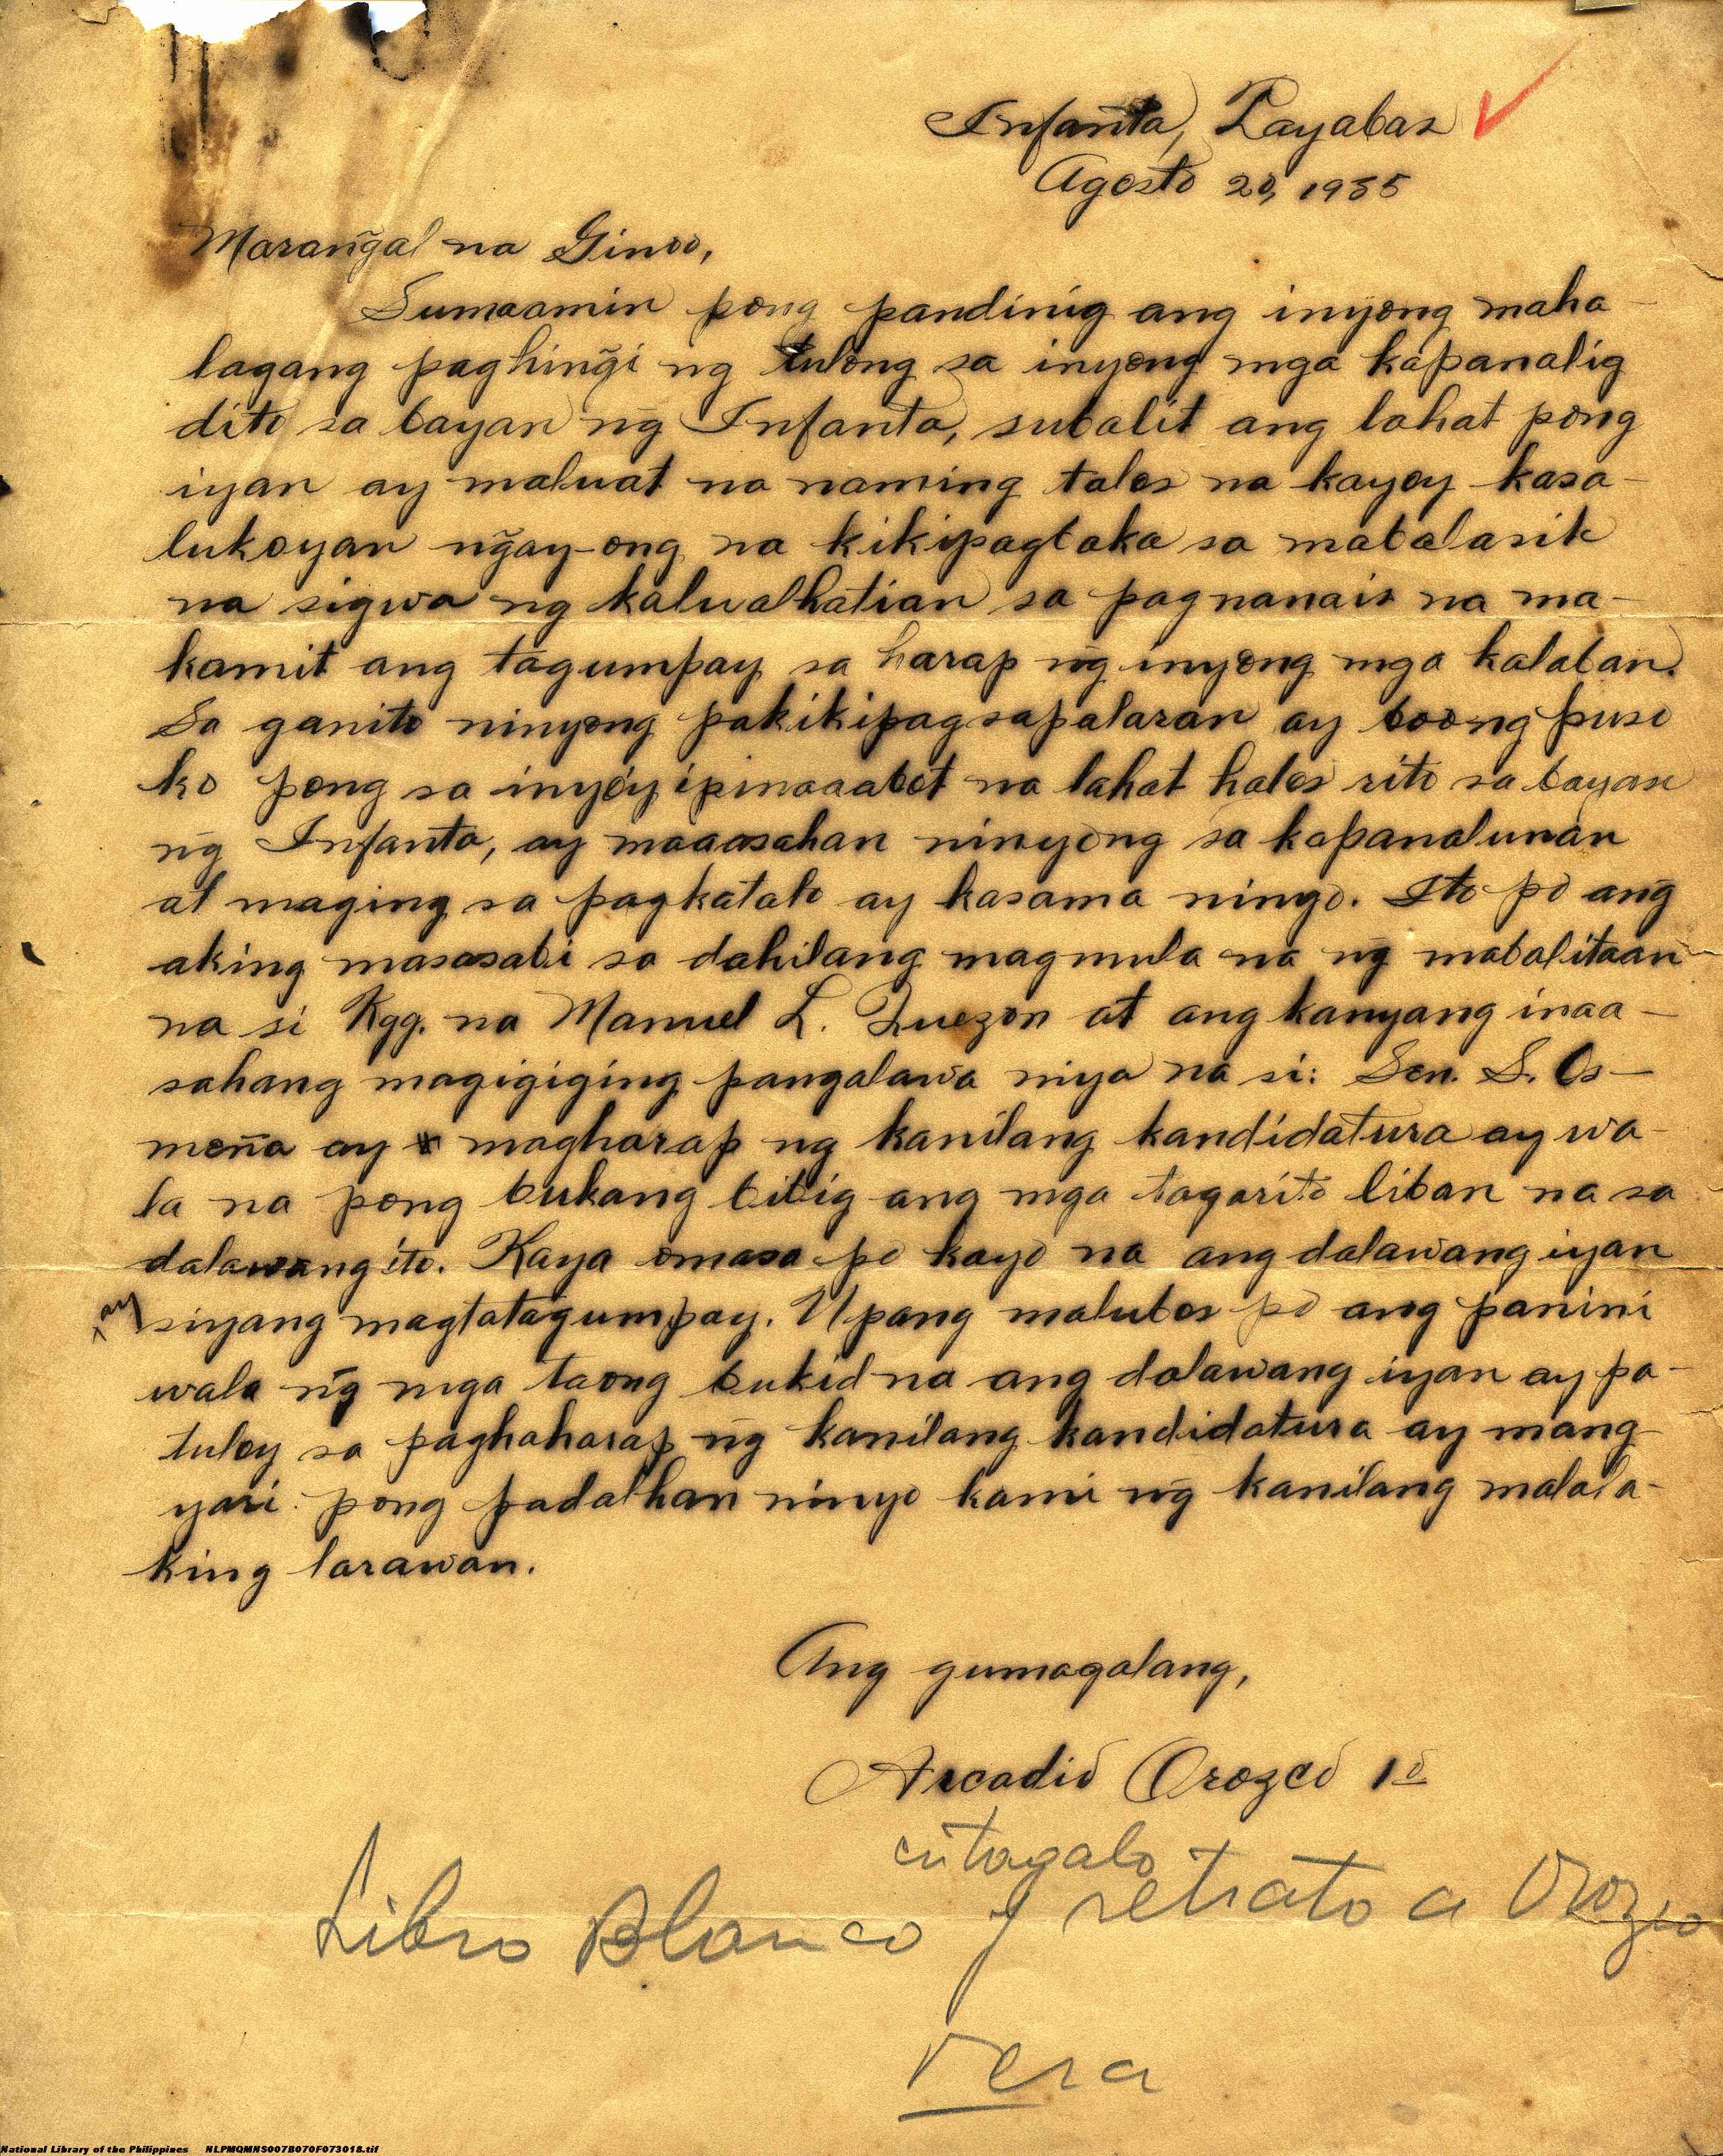 Infanta, Tayabas
Agosto 20, 1935
Marang̃al na Ginoo,
Sumaamin pong pandinig ang inyong maha-
lagang paghing̃i ng tulong sa inyong mga kapanalig
dito sa bayan ng̃ Infanta, subalit ang lahat pong
iyan ay maluat na naming talos na kayoy kasa-
lukoyan ng̃ay-ong na kikipagbaka sa mabalasik
na sigwa ng kalualhatian sa pagnanais na ma-
kamit ang tagumpay sa harap ng̃ inyong mga kalaban.
Sa ganito ninyong pakikipagsapalaran ay boong puso
ko pong sa inyo'y ipinaaabot na lahat halos rito sa bayan
ng̃ Infanta, ay maaasahan ninyong sa kapanalunan
at maging sa pagkatalo ay kasama ninyo. Ito po ang
aking masasabi sa dahilang magmula na ng̃ mabalitaan
na si Kgg. na Manuel L. Quezon at ang kanyang inaa-
sahang magigiging pangalawa niya na si: Sen. S. Os-
meña ay magharap ng kanilang kandidatura ay wa-
la na pong bukang bibig ang mga tagarito liban na sa
dalawang ito. Kaya omasa po kayo na ang dalawang iyan
ay siyang magtatagumpay. Upang malubos po ang panini
wala ng̃ mga taong bukid na ang dalawang iyan ay pa-
tuloy sa paghaharap ng̃ kanilang kandidatura ay mang-
yari pong padalhan ninyo kami ng̃ kanilang malala-
king larawan.
Ang gumagalang,
Arcadio Orozco 1º
en tagalo
Libro Blanco y retrato a Orozco
Vera
National Library of the Philippines NLPMQMNS007B070F073018.tif